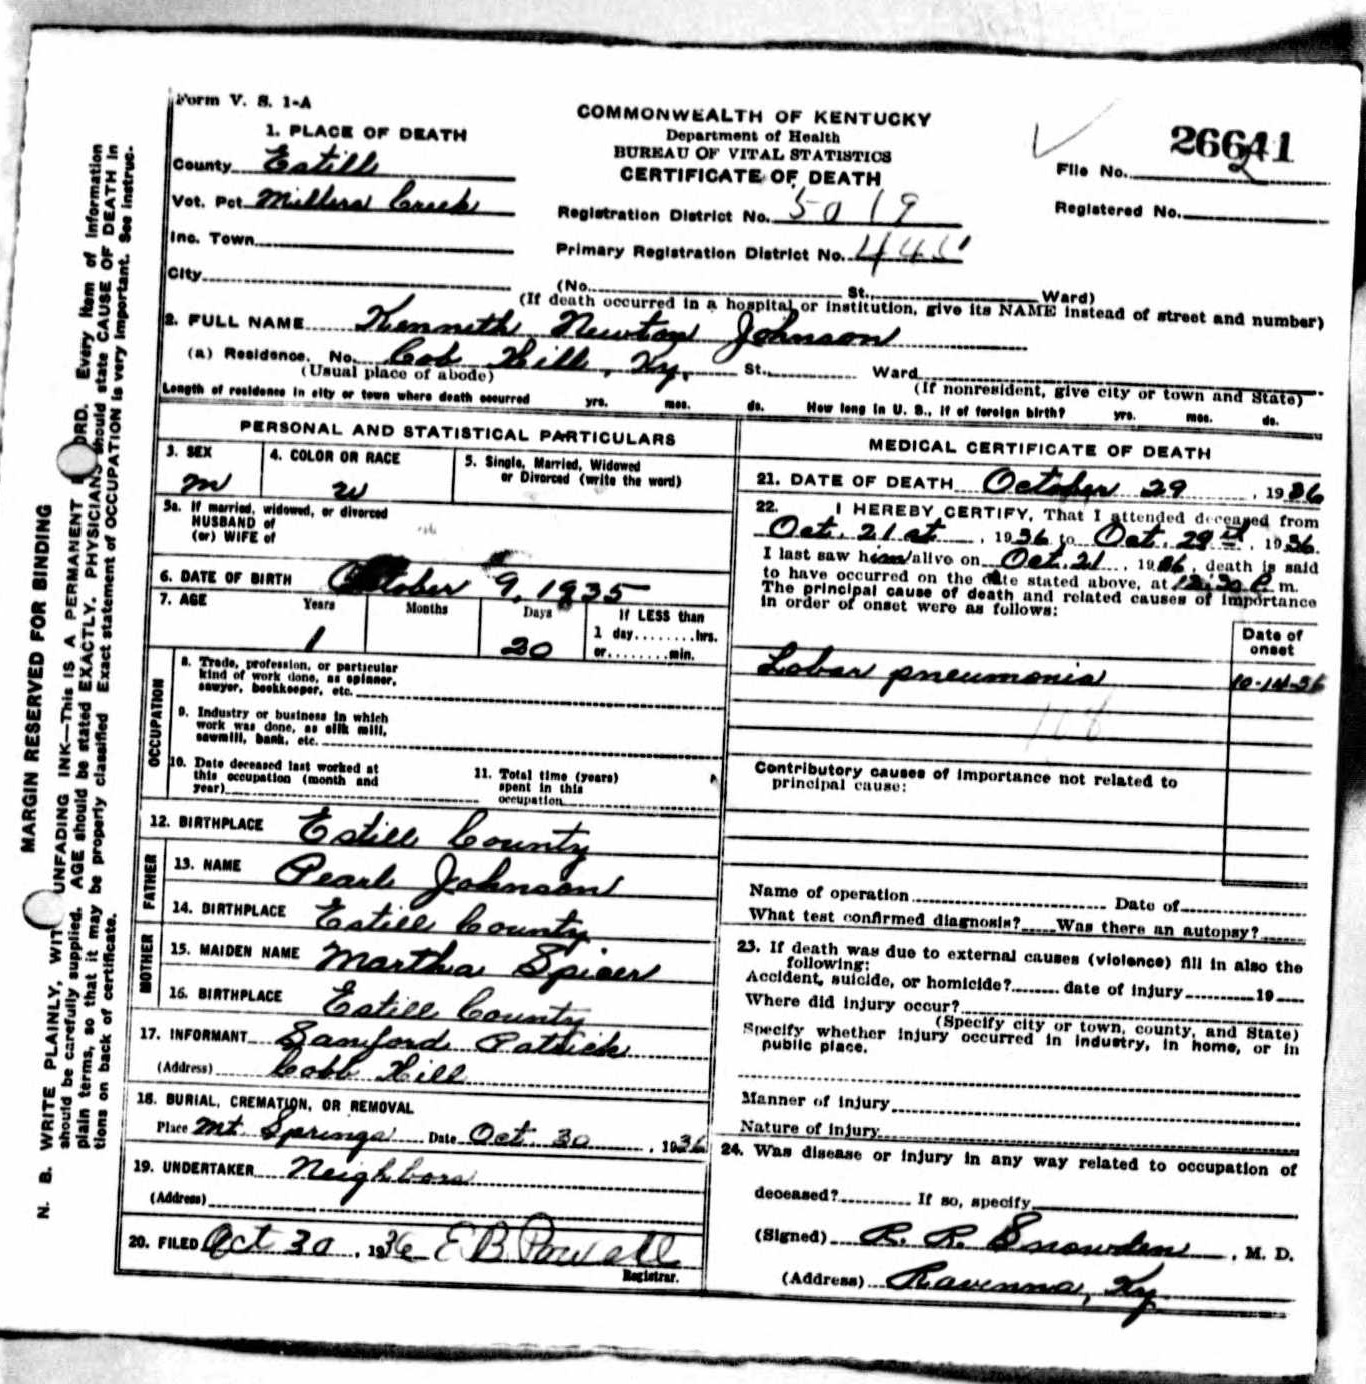 Form V. S. 1-A
COMMONWEALTH OF KENTUCKY
Department of Health
BUREAU OF VITAL STATISTICS
CERTIFICATE OF DEATH
File No.
Registered No.
1. PLACE OF DEATH
County Estill
Vot. Pct. Millers Creek
Inc. Town
City
Registration District No. 5019
Primary Registration District No. 445
(No. St., Ward)
(If death occurred in a hospital or institution, give its NAME instead of street and number)
2. FULL NAME Kenneth Newton Johnson
(a) Residence. No. Cob Hill, Ky. St., Ward
(Usual place of abode) (If nonresident, give city or town and State)
Length of residence in city or town where death occurred yrs. mos. ds. How long in U. S., if of foreign birth? yrs. mos. ds.
PERSONAL AND STATISTICAL PARTICULARS
3. SEX
m
4. COLOR OR RACE
w
5. Single, Married, Widowed
or Divorced (write the word)
5a. If married, widowed, or divorced
HUSBAND of
(or) WIFE of
6. DATE OF BIRTH October 9, 1935
7. AGE Years Months Days If LESS than
1 20 1 day........hrs.
or........min.
OCCUPATION
8. Trade, profession, or particular
kind of work done, as spinner,
sawyer, bookkeeper, etc.
9. Industry or business in which
work was done, as silk mill,
sawmill, bank, etc.
10. Date deceased last worked at
this occupation (month and
year)
11. Total time (years)
spent in this
occupation
12. BIRTHPLACE Estill County
FATHER
13. NAME Pearl Johnson
14. BIRTHPLACE Estill County
MOTHER
15. MAIDEN NAME Martha Spicer
16. BIRTHPLACE Estill County
17. INFORMANT Sanford Patrick
(Address) Cobb Hill
18. BURIAL, CREMATION, OR REMOVAL
Place Mt. Springs Date Oct 30, 1936
19. UNDERTAKER Neighbors
(Address)
20. FILED Oct 30, 1936 E B Powell
Registrar.
MEDICAL CERTIFICATE OF DEATH
21. DATE OF DEATH October 29, 1936
22. I HEREBY CERTIFY, That I attended deceased from
Oct. 21st, 1936 to Oct. 29, 1936.
I last saw him alive on Oct. 21, 1936, death is said
to have occurred on the date stated above, at 12:30 P. m.
The principal cause of death and related causes of importance
in order of onset were as follows:
Date of
onset
Lobar pneumonia 10-14-36
108
Contributory causes of importance not related to
principal cause:
Name of operation Date of
What test confirmed diagnosis? Was there an autopsy?
23. If death was due to external causes (violence) fill in also the
following:
Accident, suicide, or homicide? date of injury 19
Where did injury occur?
(Specify city or town, county, and State)
Specify whether injury occurred in industry, in home, or in
public place.
Manner of injury
Nature of injury
24. Was disease or injury in any way related to occupation of
deceased? If so, specify
(Signed) R. R. Snowden, M. D.
(Address) Ravenna, Ky.
MARGIN RESERVED FOR BINDING
N. B. WRITE PLAINLY, WITH UNFADING INK—This IS A PERMANENT RECORD. Every item of information
should be carefully supplied. AGE should be stated EXACTLY. PHYSICIANS should state CAUSE OF DEATH in
plain terms, so that it may be properly classified. Exact statement of OCCUPATION is very important. See instruc-
tions on back of certificate.